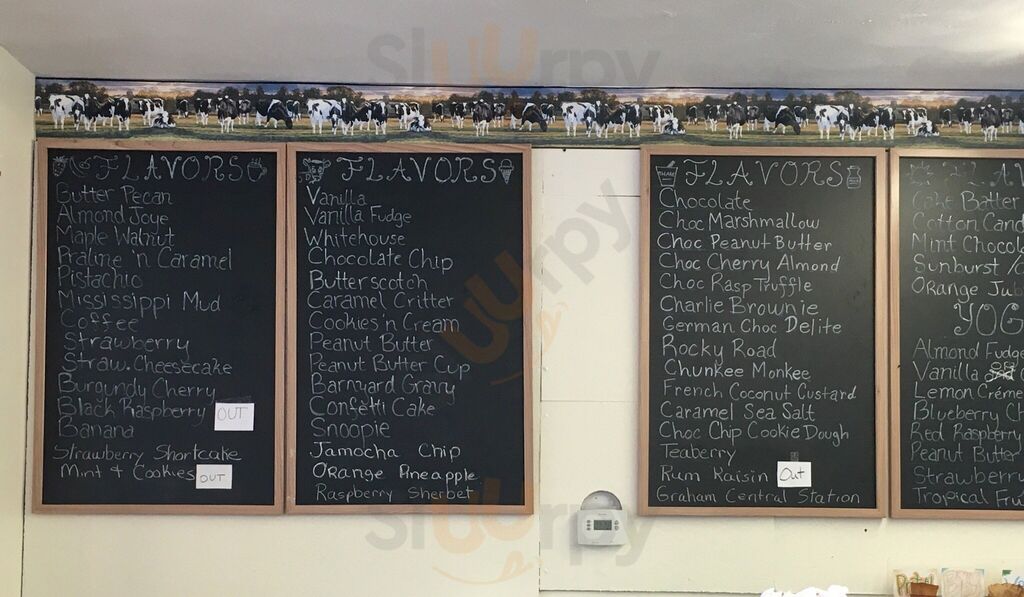 FLAVORS
Butter Pecan
Almond Joye
Maple Walnut
Praline 'n Caramel
Pistachio
Mississippi Mud
Coffee
Strawberry
Straw. Cheesecake
Burgundy Cherry
Black Raspberry OUT
Banana
Strawberry Shortcake
Mint & Cookies OUT
FLAVORS
Vanilla
Vanilla Fudge
Whitehouse
Chocolate Chip
Butterscotch
Caramel Critter
Cookies 'n Cream
Peanut Butter
Peanut Butter Cup
Barnyard Gravy
Confetti Cake
Snoopie
Jamocha Chip
Orange Pineapple
Raspberry Sherbet
FLAVORS
Chocolate
Choc Marshmallow
Choc Peanut Butter
Choc Cherry Almond
Choc Rasp Truffle
Charlie Brownie
German Choc Delite
Rocky Road
Chunkee Monkee
French Coconut Custard
Caramel Sea Salt
Choc Chip Cookie Dough
Teaberry
Rum Raisin Out
Graham Central Station
Cake Batter
Cotton Cand
Mint Chocol
Sunburst
Orange Jub
YOG
Almond Fudge
Vanilla
Lemon Creme
Blueberry Ch
Red Raspberry
Peanut Butter
Strawberry
Tropical Fru
Sluurpy
Sluurpy
Sluurpy